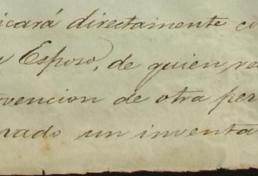 icará directamente co
Esposo, de quien, re
vencion de otra per
rado un inventa